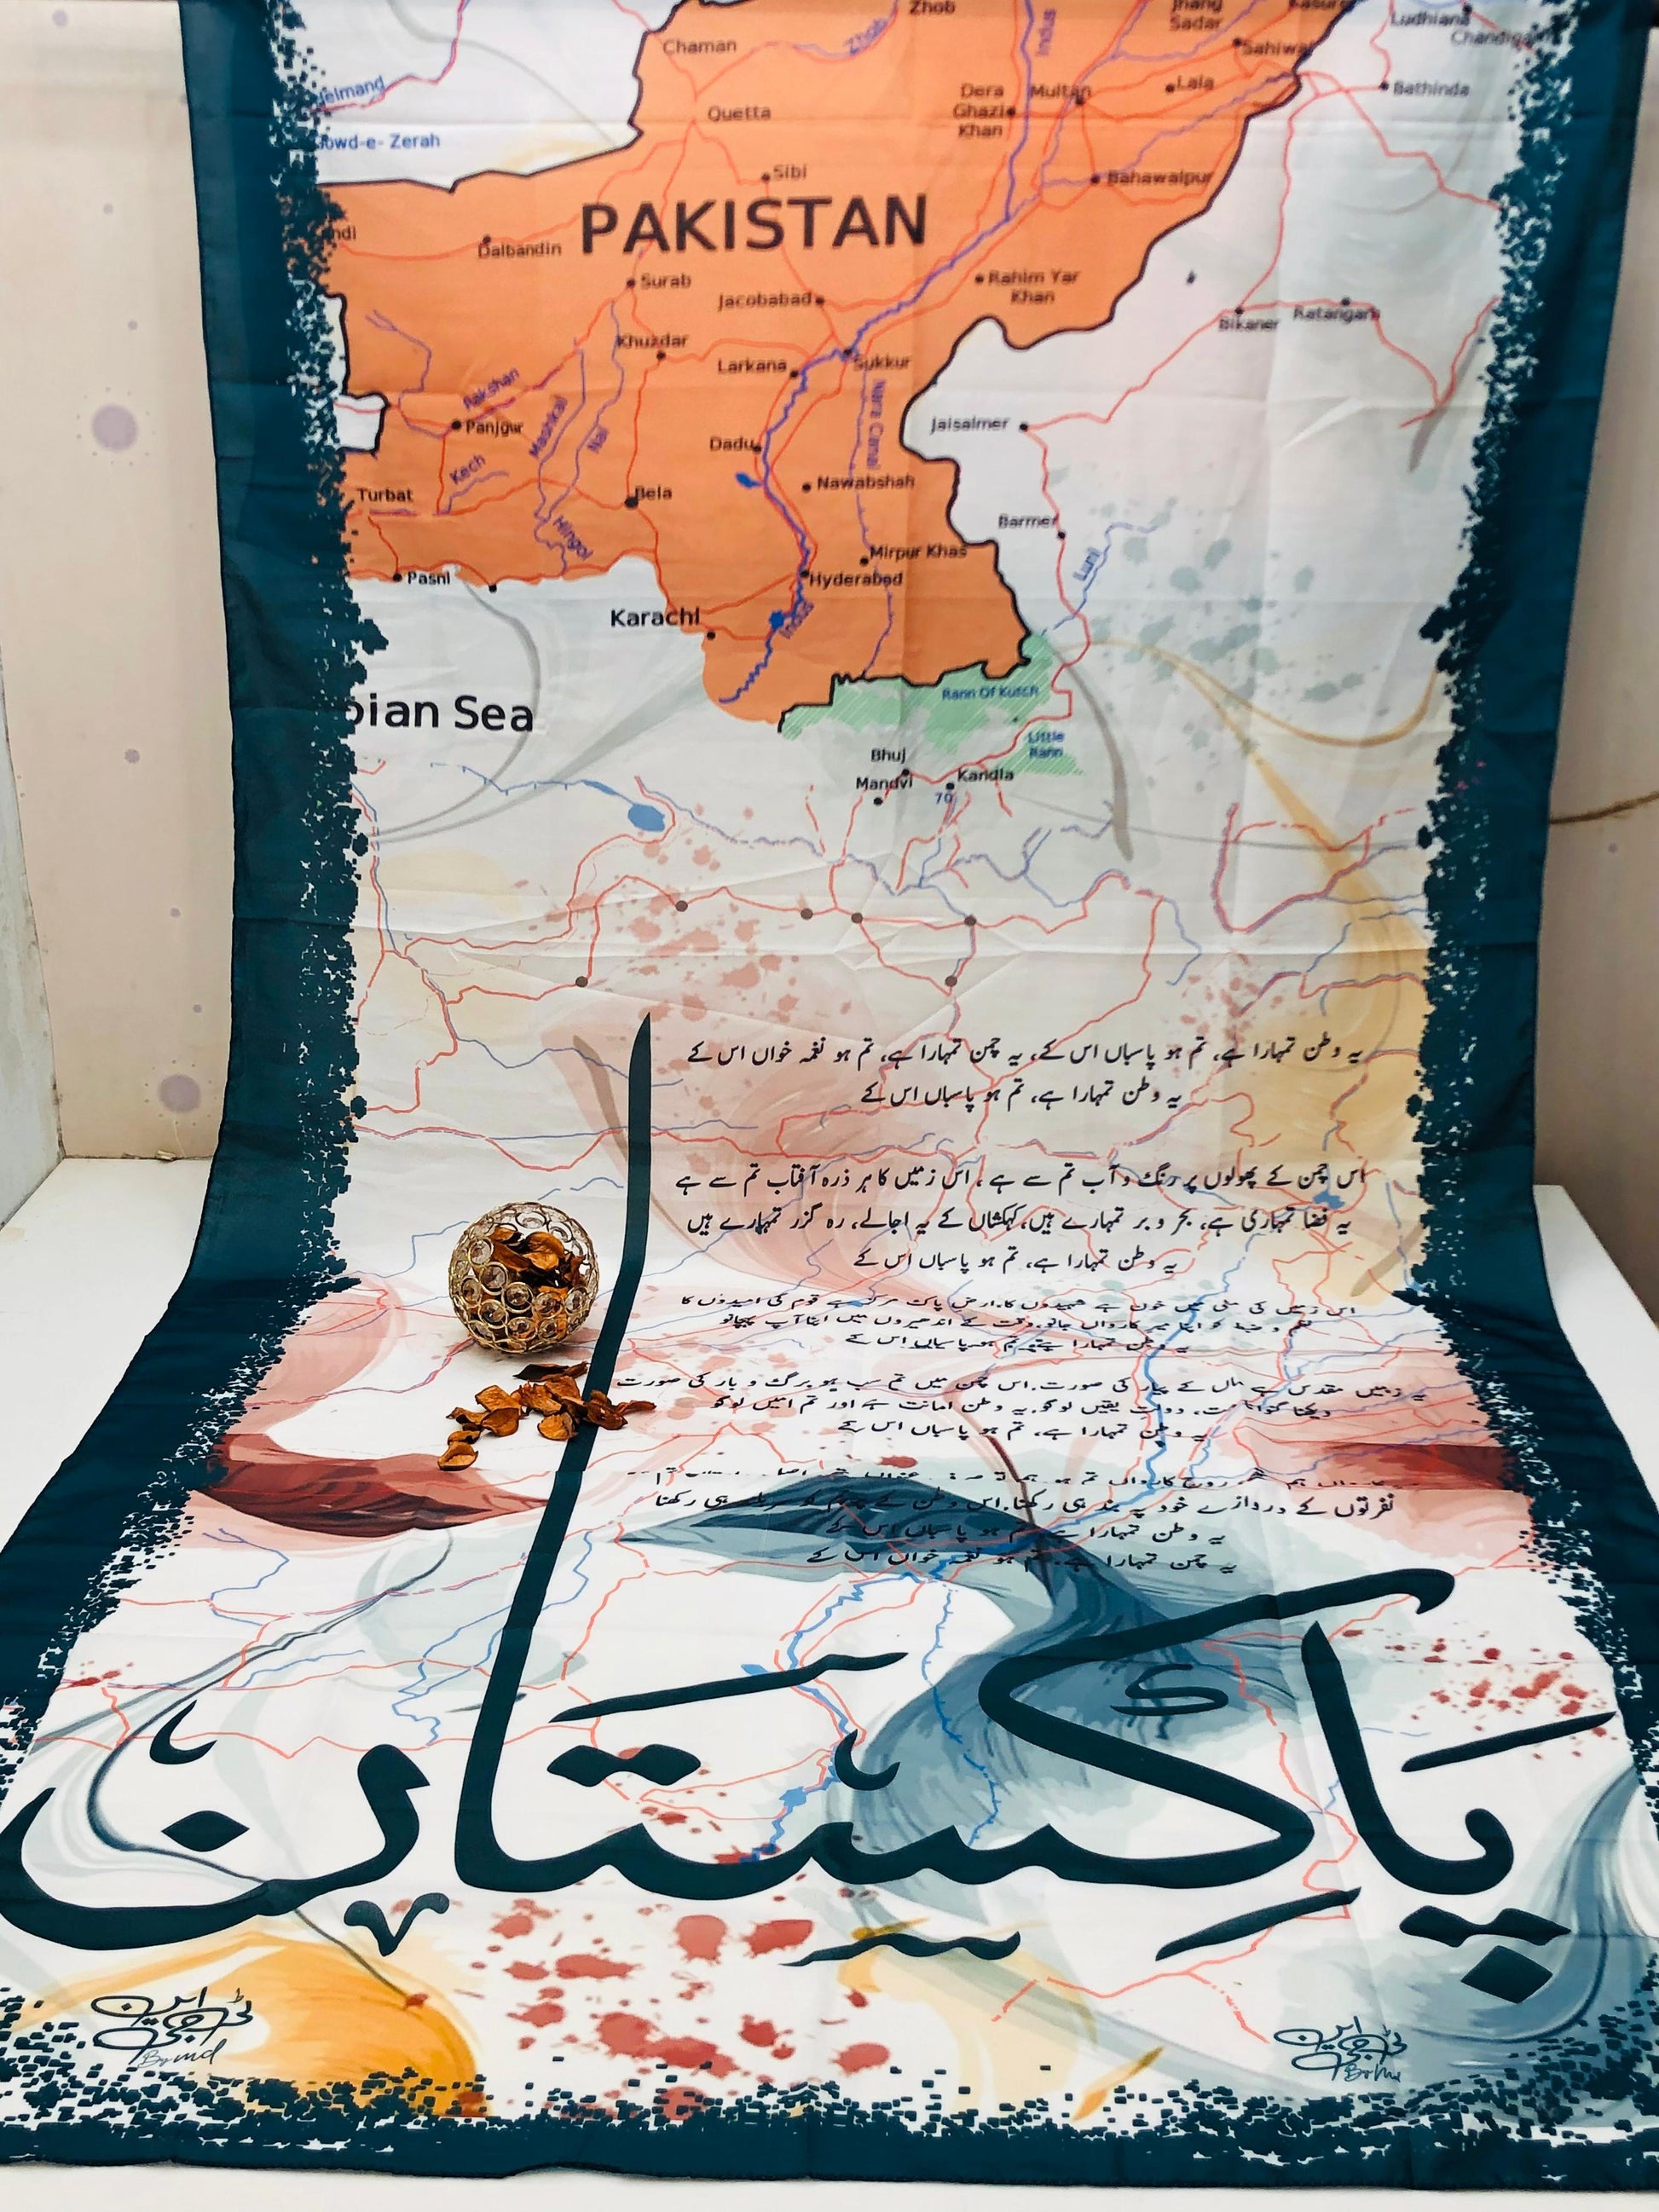 Zhob
Jhang
Sadar
Ludhiana
Chandigarh
Chaman
Zhob
Indus
Sahiwal
Helmand
Dera
Ghazi
Khan
Multan
Lala
Bathinda
Quetta
Gowd-e- Zerah
Sibi
Bahawalpur
PAKISTAN
ndi
Dalbandin
Surab
Rahim Yar
Khan
Jacobabad
Bikaner
Ratangarh
Khuzdar
Larkana
Sukkur
Rakshan
Mashkal
Nal
Nara Canal
Panjgur
Jaisalmer
Dadu
Kech
Turbat
Bela
Nawabshah
Barmer
Hingol
Mirpur Khas
Luni
Pasni
Hyderabad
Karachi
Indus
Rann Of Kutch
bian Sea
Little
Rann
Bhuj
Mandvi
Kandla
70
یہ وطن تمہارا ہے، تم ہو پاسباں اس کے، یہ چمن تمہارا ہے، تم ہو نغمہ خواں اس کے
یہ وطن تمہارا ہے، تم ہو پاسباں اس کے
اس چمن کے پھولوں پر رنگ و آب تم سے ہے، اس زمیں کا ہر ذرہ آفتاب تم سے ہے
یہ فضا تمہاری ہے، بحر و بر تمہارے ہیں، کہکشاں کے یہ اجالے، رہ گزر تمہارے ہیں
یہ وطن تمہارا ہے، تم ہو پاسباں اس کے
اس زمیں کی مٹی میں خون ہے شہیدوں کا، ارض پاک مرکز ہے قوم کی امیدوں کا
نظم و ضبط کو اپنا میر کارواں جانو، وقت کے اندھیروں میں اپنا آپ پہچانو
یہ وطن تمہارا ہے، تم ہو پاسباں اس کے
یہ زمیں مقدس ہے ماں کے پیار کی صورت، اس چمن میں تم سب ہو برگ و بار کی صورت
دیکھنا گنوانا مت، دولت یقیں لوگو، یہ وطن امانت ہے اور تم امیں لوگو
یہ وطن تمہارا ہے، تم ہو پاسباں اس کے
نفرتوں کے دروازے خود پہ بند ہی رکھنا، اس وطن کے پرچم کو سربلند ہی رکھنا
یہ وطن تمہارا ہے، تم ہو پاسباں اس کے
یہ چمن تمہارا ہے، تم ہو نغمہ خواں اس کے
پاکِستَان